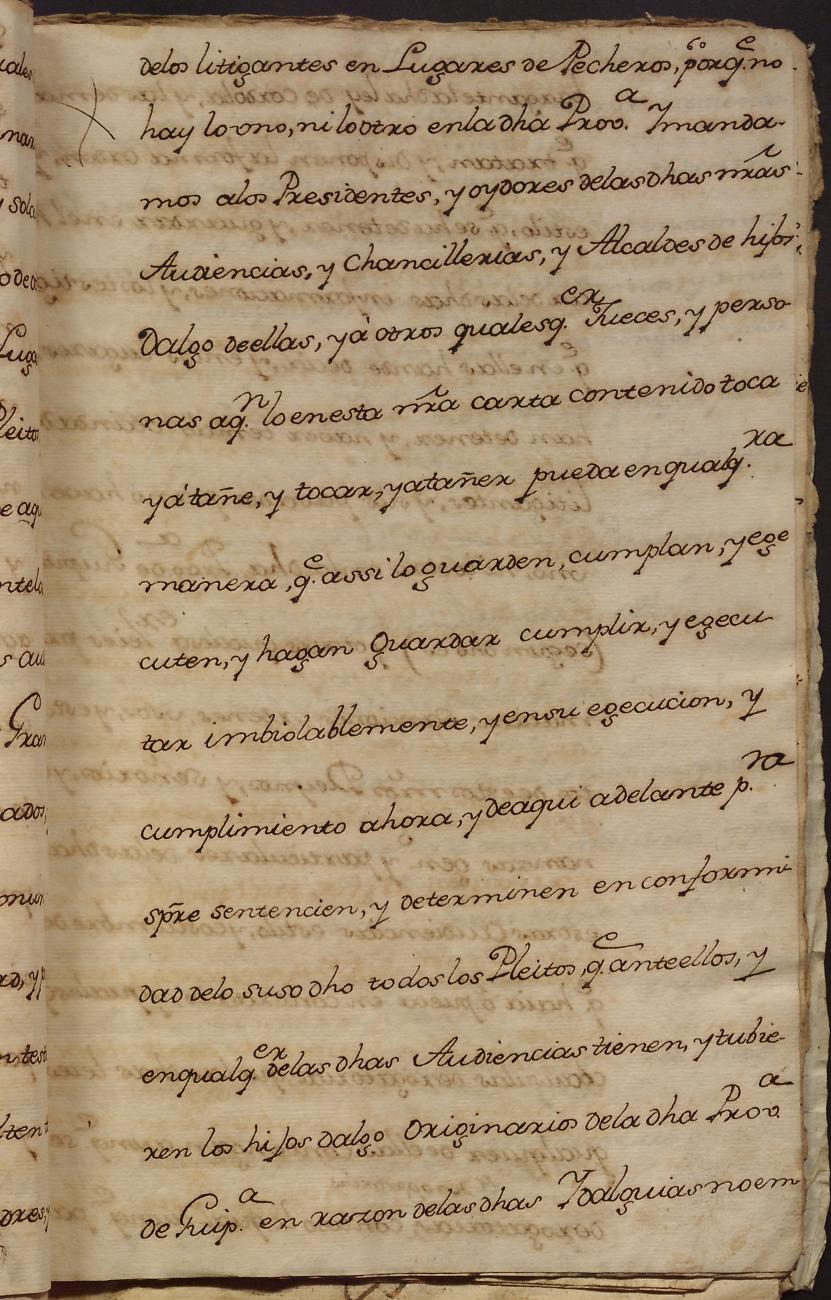 delos litigantes en Lugares de Pecheros, p.º porq.e no
hay lo vno, ni lo otro en la dhá Prov.a Y manda-
mos alos Presidentes, y oydores delas dhas nrâs
Audiencias, y Chancillerias, y Alcaldes de hijos
Dalgo de ellas, y á otros qualesq.er Jueces, y perso
nas aq.n lo en esta nrâ carta contenido toca
y átañe, y tocar, y atañer pueda en qualq.ra
manera, q.e assi lo guarden, cumplan, y ege
cuten, y hagan guardar cumplir, y egecu
tar imbiolablemente, y en su egecucion, y
cumplimiento ahora, y de aqui adelante p.ra
spr̃e sentencien, y determinen en conformi
dad delo suso dho todos los Pleitos, q.e ante ellos, y
en qualq.er delas dhas Audiencias tienen, y tubie-
ren los hijos dalgo originarios dela dha Prov.a
de Guip.a en razon delas dhas Ydalguias no em